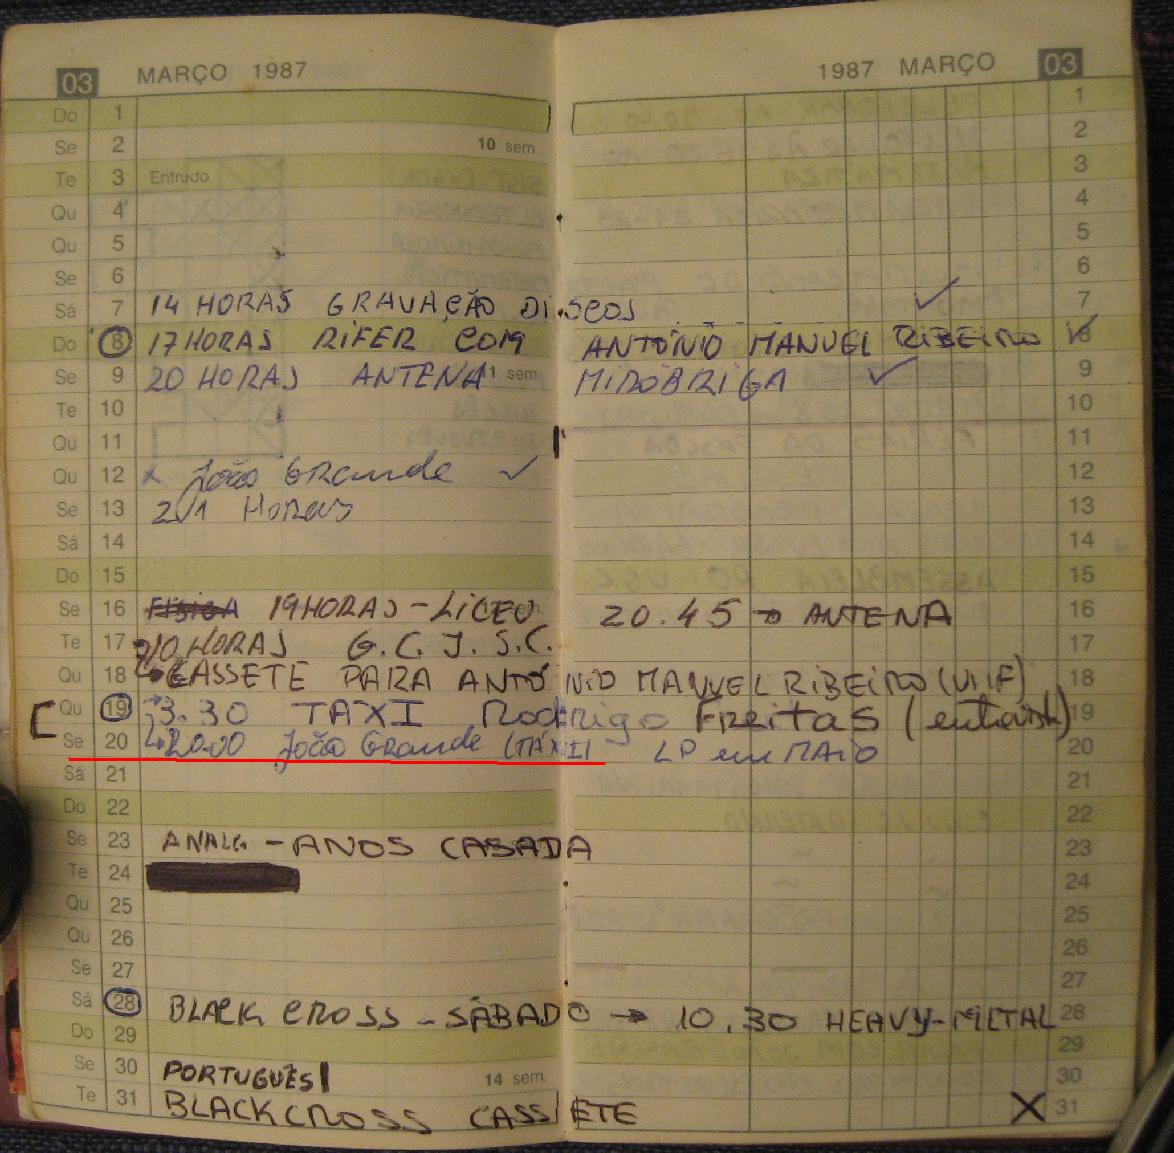 03 MARÇO 1987 1987 MARÇO 03
Do 1 1
Se 2 10 sem. 2
Te 3 Entrudo 3
Qu 4 4
Qu 5 5
Se 6 6
Sá 7 14 HORAS GRAVAÇÃO DISCOS 7
Do 8 17 HORAS RIFER COM ANTÓNIO MANUEL RIBEIRO 8
Se 9 20 HORAS ANTENA 11 sem. MIRÓBRIGA 9
Te 10 10
Qu 11 11
Qu 12 x João GRande 12
Se 13 21 HoRas 13
Sá 14 14
Do 15 15
Se 16 FÍSICA 19 HORAS - LICEU 20.45 → ANTENA 16
Te 17 HORAS G.C.J.S.C. 17
Qu 18 CASSETE PARA ANTÓNIO MANUEL RIBEIRO (UHF) 18
Qu 19 3.30 TAXI Rodrigo Freitas 19
Se 20 20.00 João GRande (TÁXI) - LP em MAIO 20
Sá 21 21
Do 22 22
Se 23 - ANOS CASADA 23
Te 24 24
Qu 25 25
Qu 26 26
Se 27 27
Sá 28 BLACK CROSS - SÁBADO → 10.30 HEAVY-METAL 28
Do 29 29
Se 30 PORTUGUÊS 14 sem. 30
Te 31 BLACKCROSS CASSETE X 31